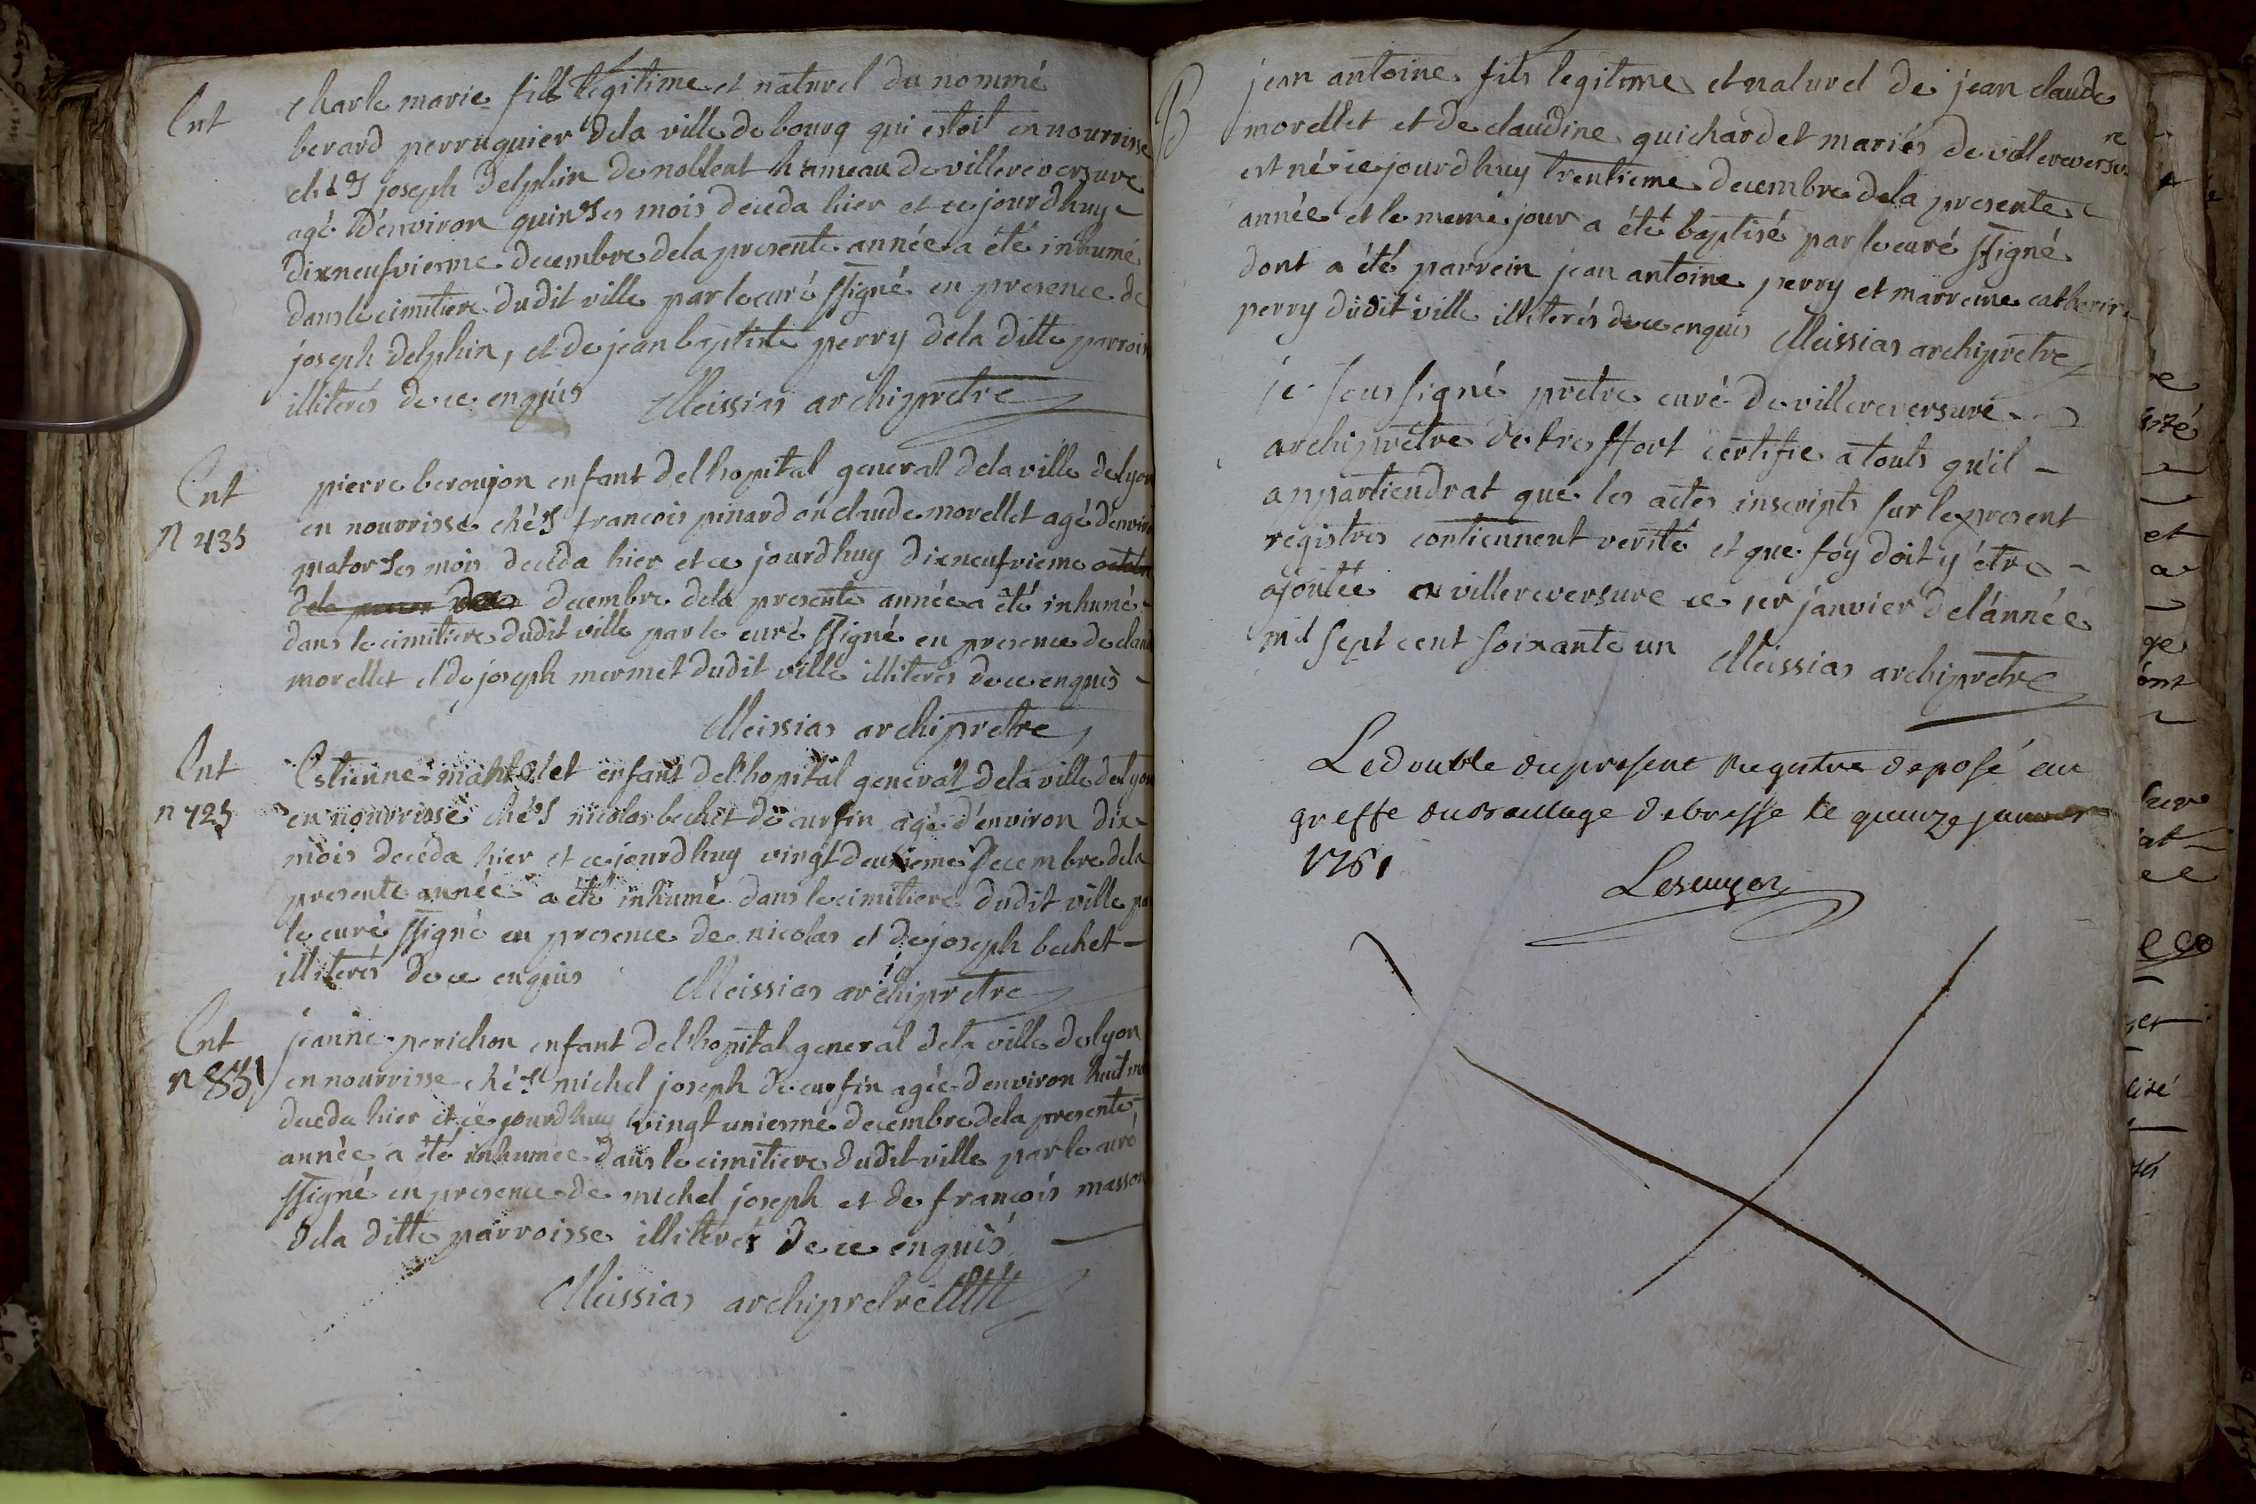 Ent
charle marie fils legitime et naturel du nommé
berard perruquier dela ville de bourg qui estoit en nourrisse
chés joseph delphin de noblent hameau de villereversure
agé d'environ quinses mois deceda hier et ce jourdhuy
dixneufvierme decembre dela presente année a été inhumé
dans le cimitiere dudit ville par le curé ssigné en presence de
joseph delphin, et de jean baptiste perry dela ditte parrois
illiterés de ce enquis Meissias archipretre
Ent
n 435
pierre beroujon enfant del hopital general dela ville de lyon
en nourrisse chés francois pinard où claude morellet agé d'enviro
quatorses mois deceda hier et ce jourdhuy dixneufvieme
decembre dela presente année a été inhumé
dans le cimitiere dudit ville par le curé ssigné en presence de claud
morellet et de joseph mermet dudit ville illiterés de ce enquis
Meissias archipretre
Ent
n 425
Estienne enfant del hopital general dela ville de lyon
en nourrisse chés nicolas bechet de curfin agé d'environ dix
mois deceda hier et ce jourdhuy vingt deuxieme decembre dela
presente année a été inhumé dans le cimitiere dudit ville par
le curé ssigné en presence de nicolas et de joseph bechet
illiterés de ce enquis Meissias archipretre
Ent
n 831
jeanne perichon enfant del hopital general dela ville de lyon
en nourrisse chés michel joseph de curfin agée d'environ huit mo
deceda hier et ce jourdhuy vingt unierme decembre dela presente
année a été inhumée dans le cimitiere dudit ville par le curé
ssigné en presence de michel joseph et de francois masson
dela ditte parroisse illiterés de ce enquis
Meissias archipretre
B
jean antoine fils legitime et naturel de jean claude
morellet et de claudine guichardet mariés de villereversure
est né ce jourdhuy trentieme decembre dela presente
année et le meme jour a été baptisé par le curé ssigné
dont a été parrein jean antoine perry et marreine catherine
perry dudit ville illiterés de ce enquis Meissias archipretre
je sous signé pretre curé de villereversure
archipretre de tressort certifie a touts qu'il
appartiendrat que les actes inscripts sur le present
registres contiennent verité et que foy doit y étre
ajoutée a villereversure ce 1er janvier de l'année
mil sept cent soixante un Meissias archipretre
Le double du present Registre deposé au
greffe du Bailliage de bresse le quinze janvier
1761